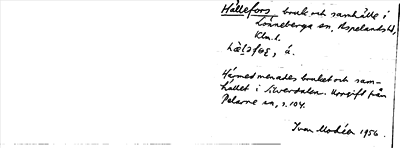 Hällefors, bruk och samhälle i
Lönneberga sn, Aspelands hd,
Klm. l.
hä̀l̥əfɷʂ, á.
Härmed menades bruket och sam-
hället i Silverdalen. Uppgift från
Pelarne sn, s. 104.
Ivar Modéer 1956.